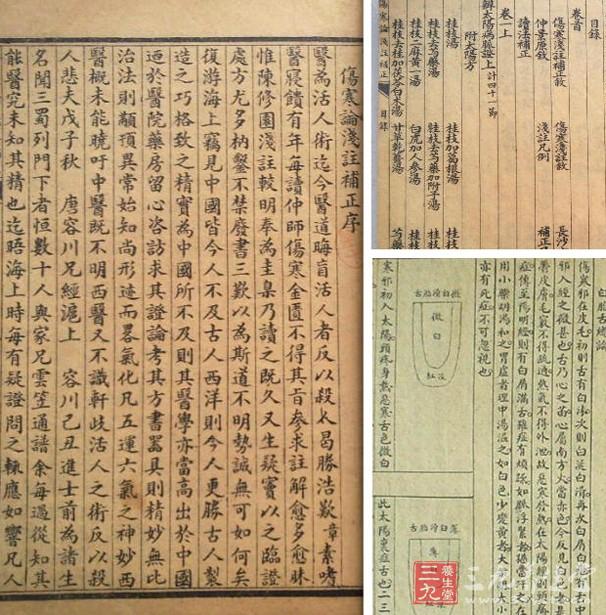 傷寒論淺註補正序
醫爲活人術迄今醫道晦盲活人者反以殺人曷勝浩歎章素嗜
醫寢饋有年每讀仲師傷寒金匱不得其旨參求註解愈多愈昧
惟陳修園淺註較明奉爲圭臬乃讀之既久又生疑竇以之臨證
處方尤多枘鑿不禁廢書三歎以爲斯道不明勢誠無可如何矣
復游海上竊見中國皆今人不及古人西洋則今人更勝古人製
造之巧格致之精實爲中國所不及則其醫學亦當高出於中國
迺於醫院藥房留心咨訪求其證論考其方書器具則精妙無比
治法則顢頇異常始知尚形迹而畧氣化凡五運六氣之神妙西
醫概未能曉吁中醫既不明西醫又不識軒歧活人之術反以殺
人悲夫戊子秋 唐容川兄經滬上 容川己丑進士前爲諸生
名聞三蜀列門下者恒數十人與家兄雲笠通譜余每過從知其
能醫究未知其精也迄晤海上時每有疑證問之輒應如響凡人
目錄
卷首
傷寒淺註補正敘 傷寒淺註敘 長沙
仲景原敘 淺註凡例 補正
讀法
卷一上
辨太陽病脈證上 計四十一節
附太陽方
桂枝湯 桂枝加葛根湯 桂枝
桂枝去芍藥湯 桂枝去芍藥加附子湯 桂枝
桂枝二麻黃一湯 白虎加人參湯 桂枝
桂枝去桂加茯苓白朮湯 甘草乾薑湯 芍藥
傷寒論淺註補正 目錄
白胎舌總論
傷寒邪在皮毛初則舌有白沫次則白涎白滑再次白屑白疱有舌中
用小柴胡湯和之胃虛者理中湯溫之如白色少變黃者大承氣大小
亦有死症不可忽視也
微白滑胎舌
微白
寒邪初入太陽頭疼身熱惡寒舌色微白
薄白滑胎舌
此太陽裏症舌也二三
三九養生堂